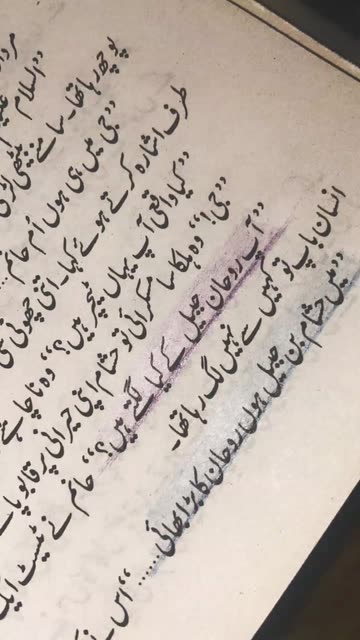 مرد
"السلام
پوچھ رہا تھا۔ سامنے بیٹھی لڑکی
"جی میں ہی ہوں اُم حانم...
طرف اشارہ کرتے ہوئے کہا۔ اتنی چھوٹی سی
"کیا واقعی آپ یہاں ٹیچر ہیں؟" وہ نا چاہتے
"جی!" وہ ہلکا سا مسکرائی تو حشام اپنی حیرانی پر قابو پا
"آپ روحان جبیل کے کیا لگتے ہیں؟" حانم نے ٹیسٹ ایک
انسان باپ تو کہیں سے نہیں لگ رہا تھا۔
"میں حشام بن جبیل ہوں روحان کا بڑا بھائی...... "اس نے